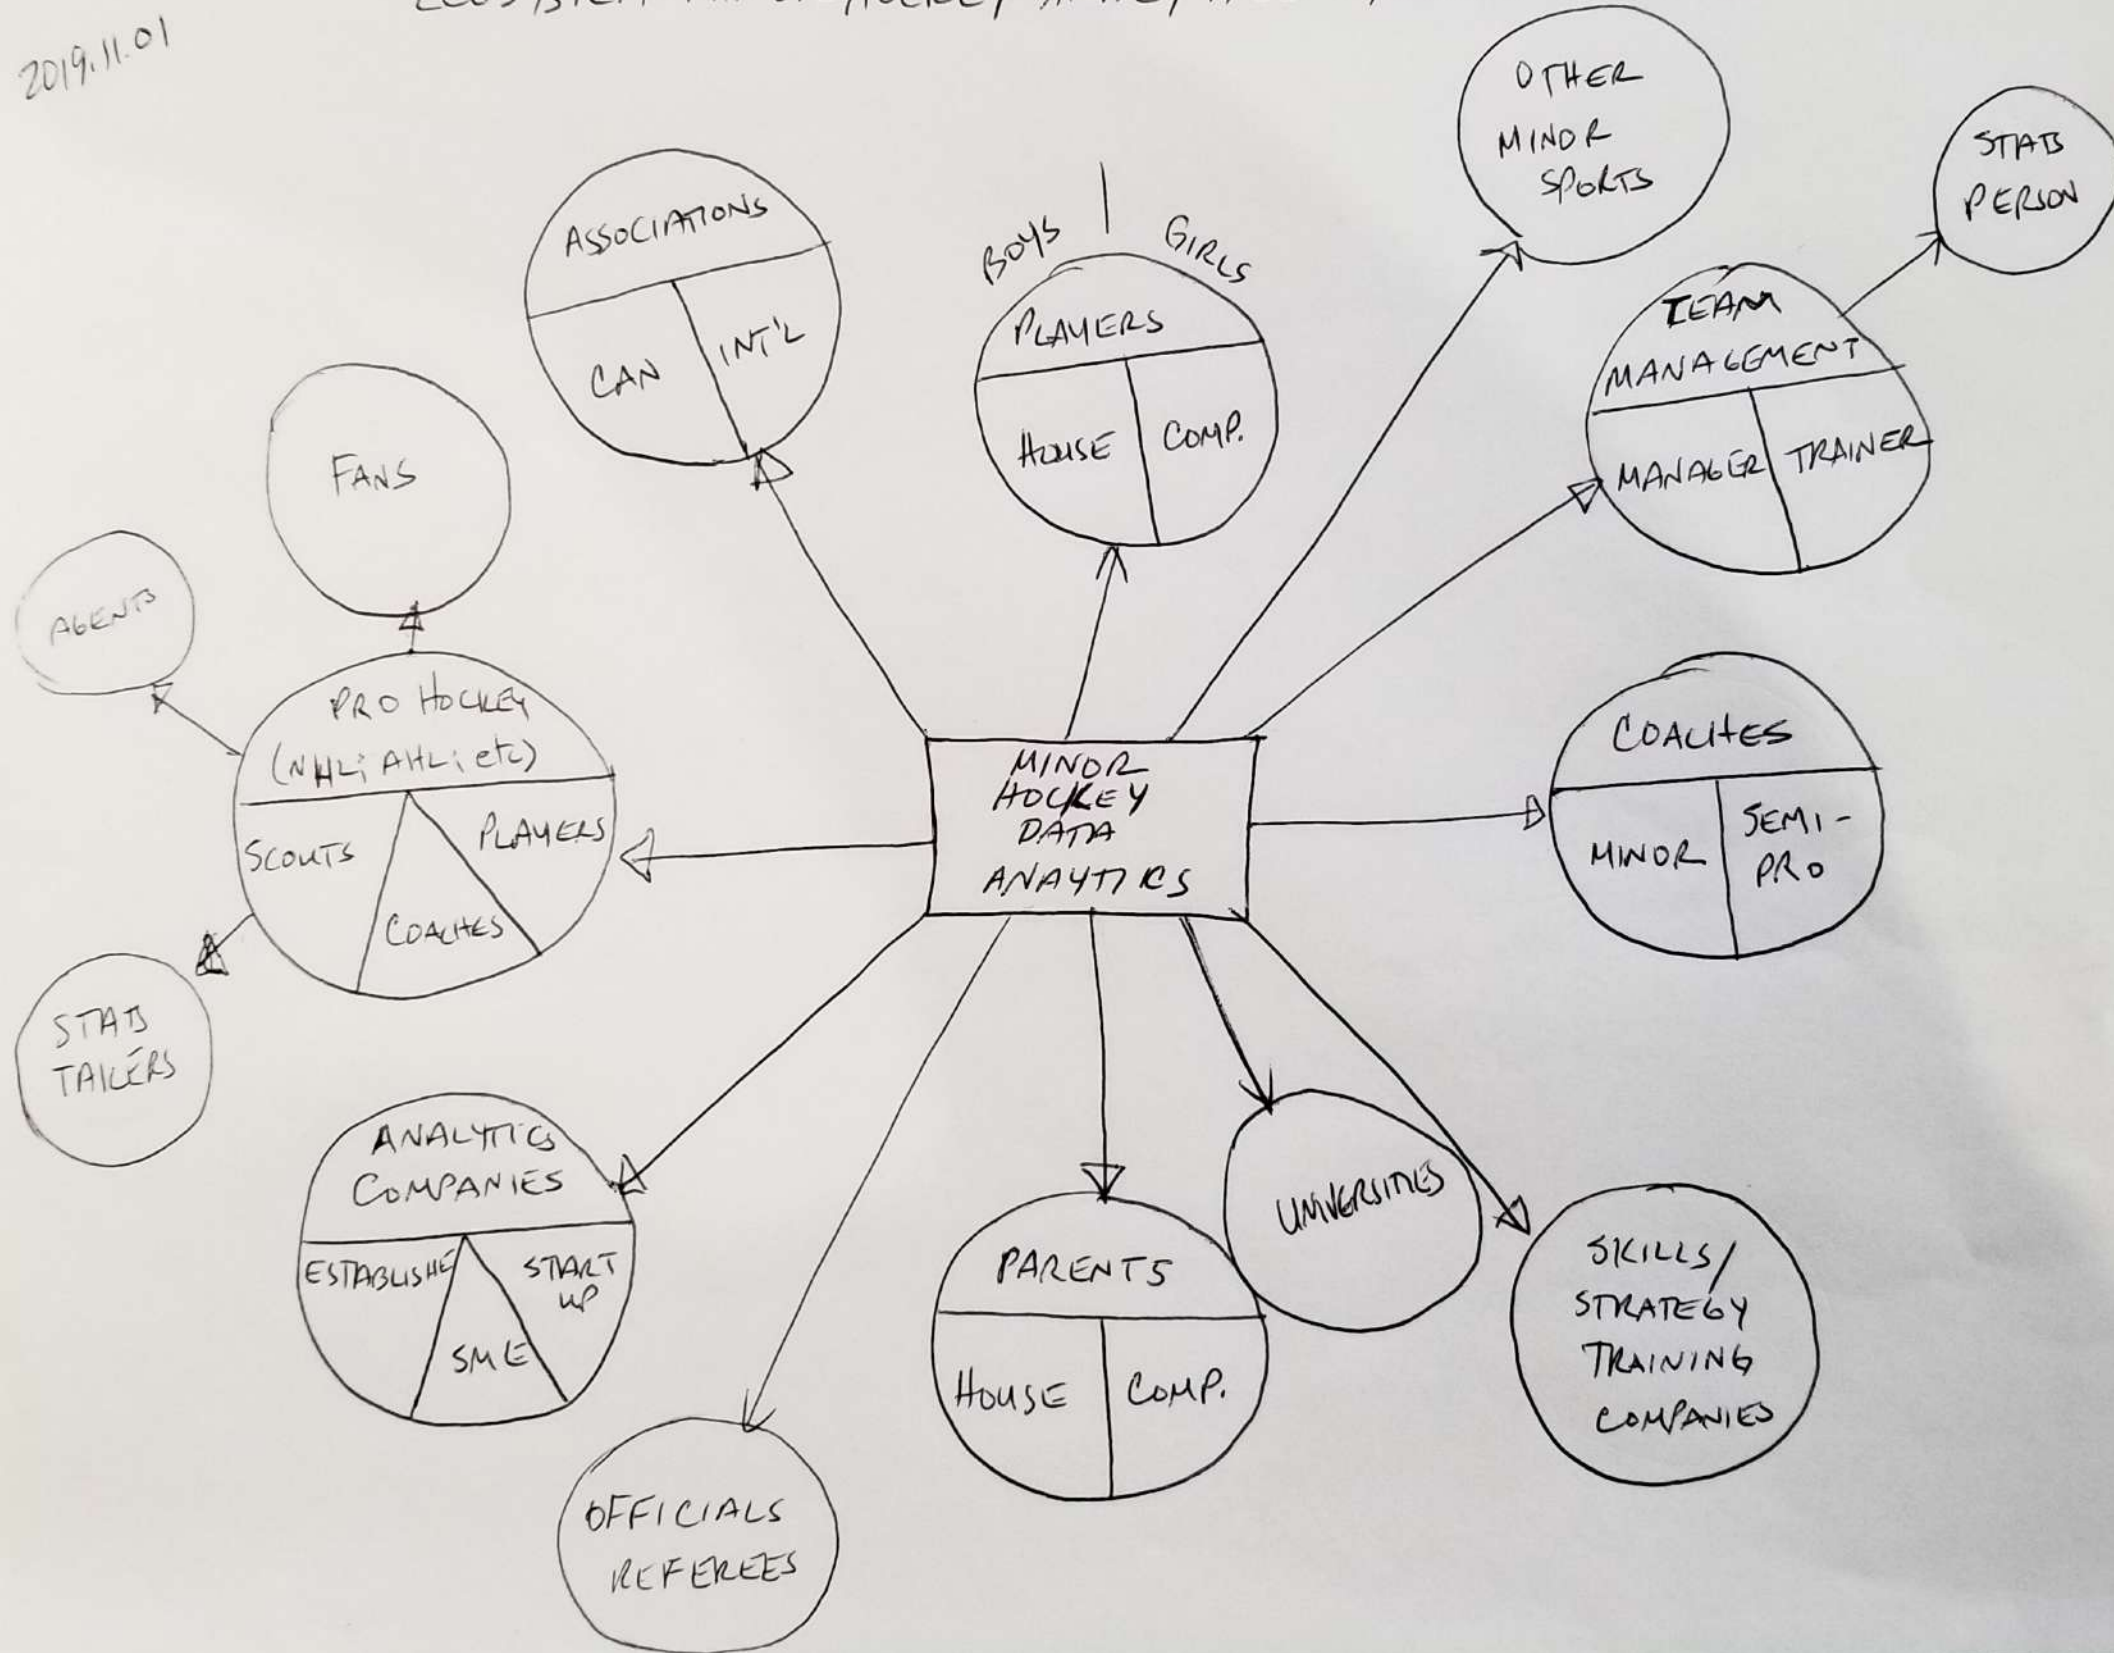 2019.11.01
OTHER
MINOR
SPORTS
STATS
PERSON
ASSOCIATIONS
CAN
INT'L
BOYS
GIRLS
PLAYERS
HOUSE
COMP.
TEAM
MANAGEMENT
MANAGER
TRAINER
FANS
AGENTS
PRO HOCKEY
(NHL; AHL; etc)
SCOUTS
COACHES
PLAYERS
MINOR
HOCKEY
DATA
ANAYTICS
COACHES
MINOR
SEMI-
PRO
STATS
ANALYTICS
COMPANIES
ESTABLISHE
SME
START
UP
PARENTS
HOUSE
COMP.
UNIVERSITIES
SKILLS/
STRATEGY
TRAINING
COMPANIES
OFFICIALS
REFEREES